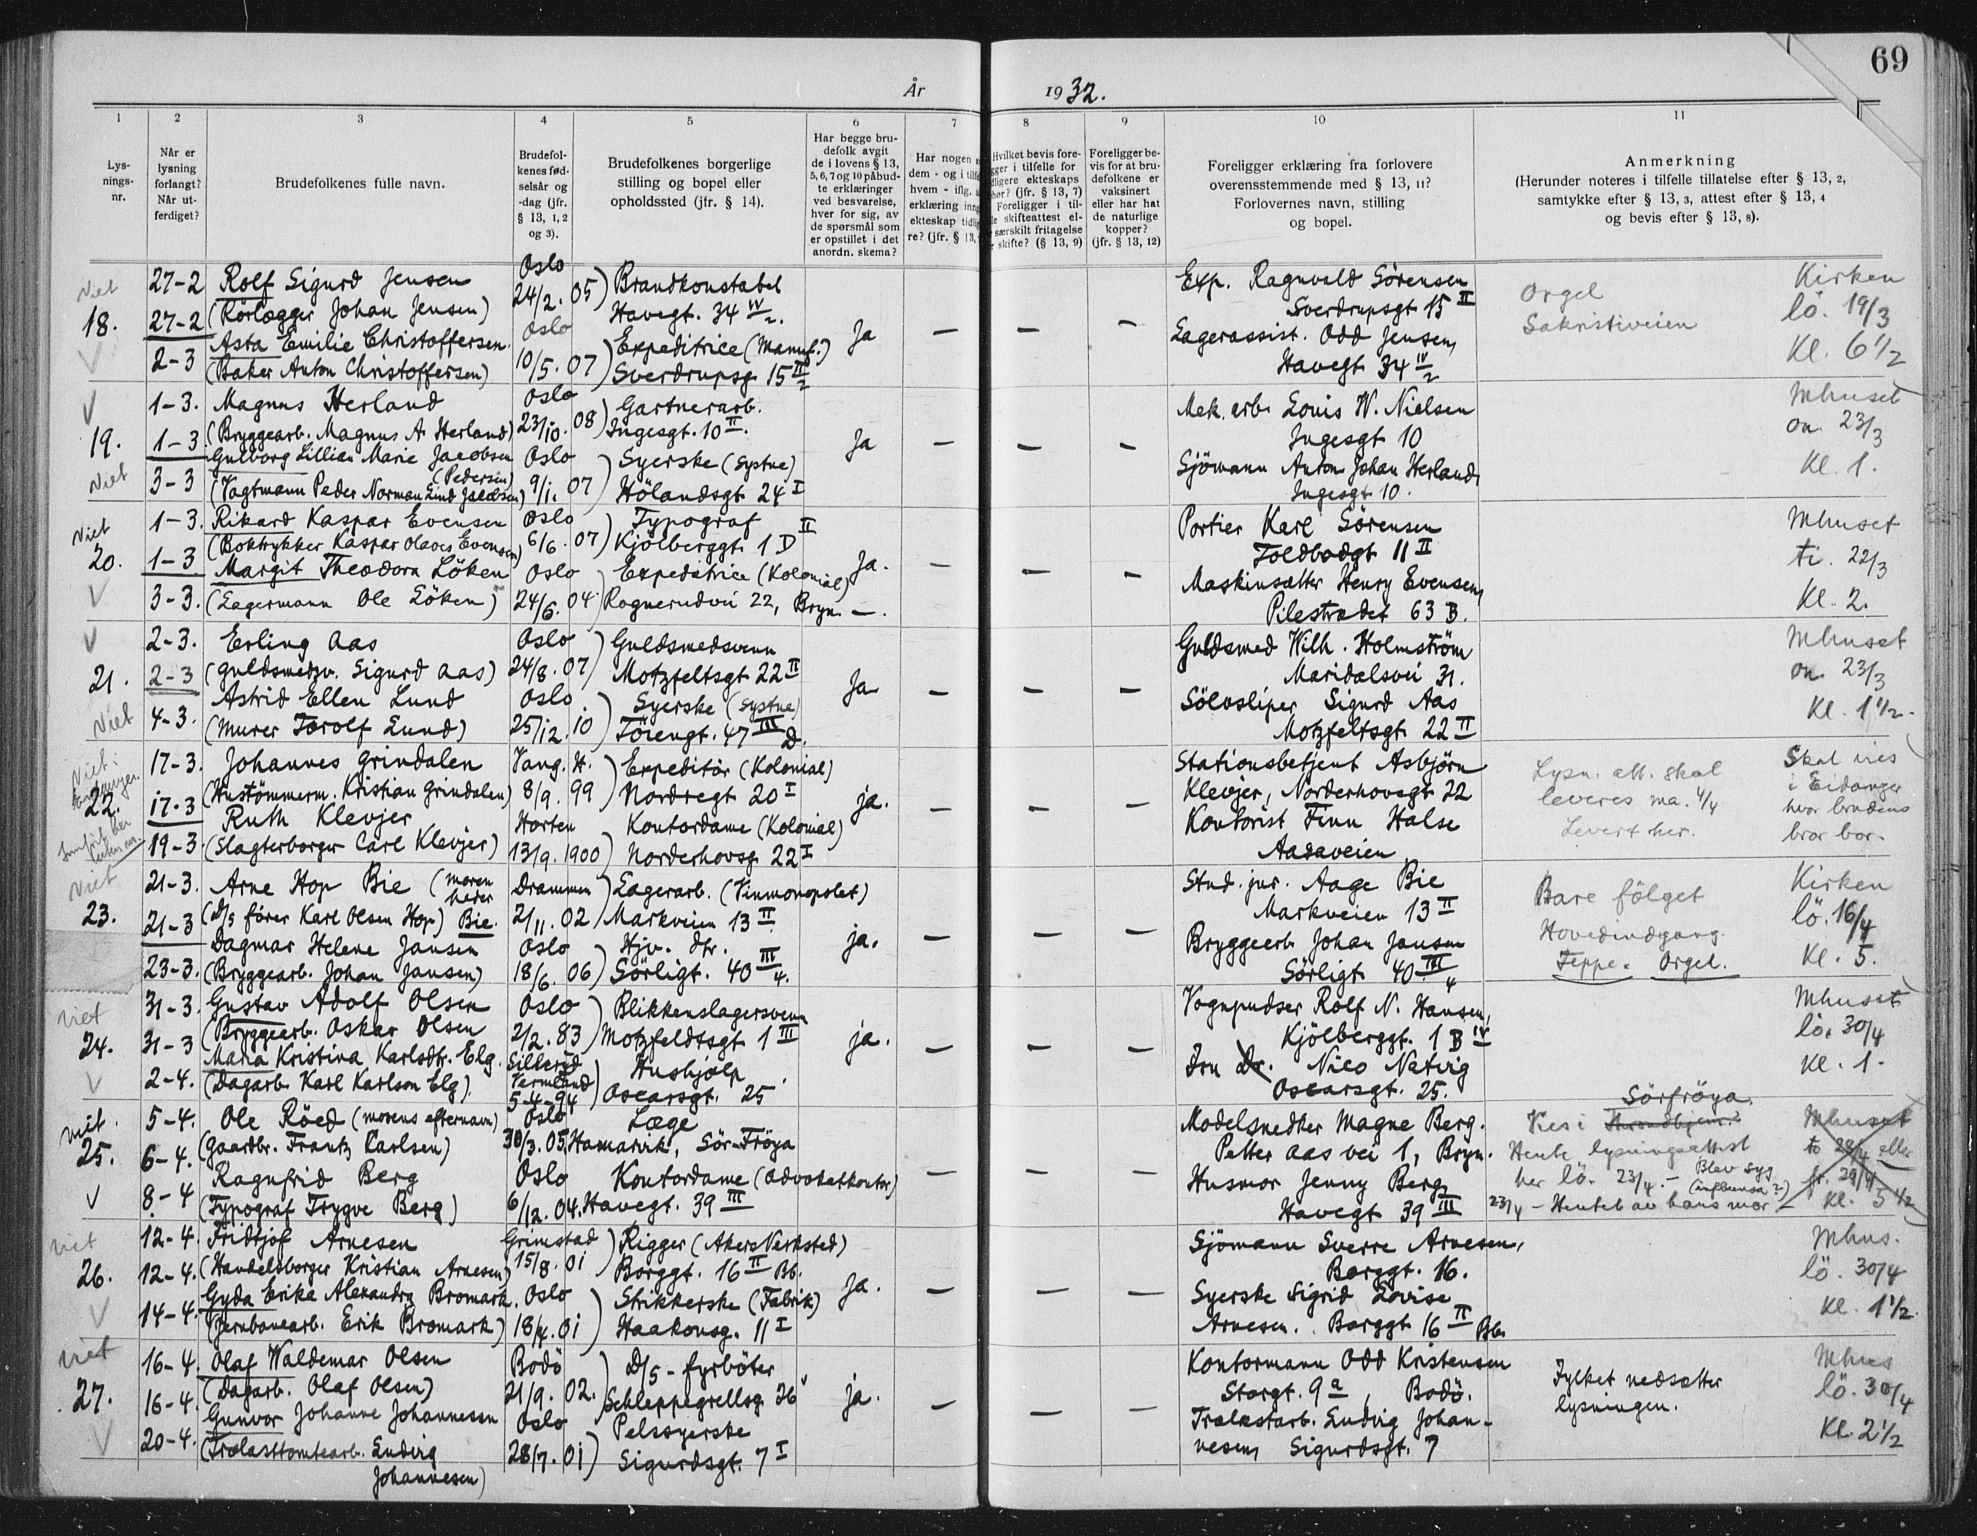 69
År 1932.
1 2 3 4 5 6 7 8 9 10 11
Lysningsnr.
Når er lysning forlangt? Når utferdiget?
Brudefolkenes fulle navn.
Brudefolkenes fødselsår og -dag (jfr. § 13, 1, 2 og 3).
Brudefolkenes borgerlige stilling og bopel eller opholdssted (jfr. § 14).
Har begge brudefolk avgit de i lovens § 13, 5, 6, 7 og 10 påbudte erklæringer ved besvarelse, hver for sig, av de spørsmål som er opstillet i det anordn. skema?
Foreligger bevis for at brudefolkene er vaksinert eller har hat de naturlige kopper? (jfr. § 13, 12)
Foreligger erklæring fra forlovere overensstemmende med § 13, 11? Forlovernes navn, stilling og bopel.
Anmerkning
(Herunder noteres i tilfelle tillatelse efter § 13, 2, samtykke efter § 13, 3, attest efter § 13, 4 og bevis efter § 13, 8).
Viet
18.
27-2
27-2
2-3
Rolf Sigurd Jensen
(Rörlægger Johan Jensen)
Asta Emilie Christoffersen.
(Baker Anton Christoffersen)
Oslo
24/2. 05
Oslo
10/5. 07
Brandkonstabel
Havegt. 34 IV/2.
Expeditrice (Manuf.)
Sverdrupsg 15 II/2
Ja — — —
Exp. Ragnvald Sörensen
Sverdrupsgt 15 II
Lagerassist. Odd Jensen,
Havegt 34 IV/2
Orgel
Sakristiveien
Kirken
lö. 19/3
Kl. 6 1/2
19.
Viet
1-3.
1-3
3-3
Magnus Herland
(Bryggearb. Magnus A. Herland)
Gulborg Lillian Marie Jacobsen
(Pedersen)
(Vagtmann Peder Norman Lind Jacobsen)
Oslo
23/10. 08
Oslo
9/1. 07
Gartnerarb.
Ingesgt. 10 II.
Syerske (Systue)
Hölandsgt 24 I
Ja — — —
Mek. arb. Louis W. Nielsen
Ingesgt 10
Sjömann Anton Johan Herland,
Ingesgt 10.
Mhuset
on. 23/3
Kl. 1.
Viet
20.
1-3.
1-3
3-3.
Rikard Kaspar Evensen
(Boktrykker Kaspar Olaves Evensen)
Margit Theodora Löken
(Lagermann Ole Löken)
Oslo
6/6. 07
Oslo
24/6. 04
Typograf
Kjölberggt 1 D II
Expeditrice (Kolonial)
Rognerudvei 22, Bryn.
Ja. — — —
Portier Karl Sörensen
Toldbodgt 11 II
Maskinsætter Henry Evensen,
Pilestrædet 63 B.
Mhuset
ti. 22/3
Kl. 2.
21.
Viet
2-3.
2-3
4-3.
Erling Aas
(Guldsmedsv. Sigurd Aas)
Astrid Ellen Lund
(Murer Torolf Lund)
Oslo
24/8. 07
Oslo
25/12. 10
Guldsmedsvenn
Motzfeltsgt 22 II
Syerske (Systue)
Töiengt. 47 III D.
Ja — — —
Guldsmed Wilh. Holmström
Maridalsvei 31.
Sölvsliper Sigurd Aas
Motzfeltsgt 22 II
Mhuset
on 23/3
Kl. 1 1/2
Viet i
22.
17-3.
17-3
19-3
Johannes Grindalen
(Hustömmerm. Kristian Grindalen)
Ruth Klevjer
(Slagterborger Carl Klevjer)
Vang. H.
8/9. 99
Horten
13/9. 1900
Expeditör (Kolonial)
Nordregt 20 I
Kontordame (Kolonial)
Norderhovsg 22 I
ja. — — —
Stationsbetjent Asbjörn
Klevjer, Norderhovsgt 22
Kontorist Finn Halse
Aasaveien
Lysn. att. skal
leveres ma. 4/4
Levert her.
Skal vies
i Eidanger
hvor brudens
bror bor.
Viet
23.
21-3.
21-3
23-3.
Arne Hop Bie (moren heder
(D/S förer Karl Olsen Hop) Bie.
Dagmar Helene Jansen
(Bryggearb. Johan Jansen)
Drammen
2/11. 02
Oslo
18/6. 06
Lagerarb. (Vinmonopolet)
Markveien 13 II
Hjv. dtr.
Sörligt. 40 III/4.
ja. — — —
Stud. jur. Aage Bie
Markveien 13 II
Bryggearb Johan Jansen
Sörligt 40 III/4
Bare fölget
Hovedindgang.
Teppe. Orgel.
Kirken
lö. 16/4
Kl. 5.
viet
24.
31-3.
31-3
2-4.
Gustav Adolf Olsen
(Bryggearb. Oskar Olsen
Maria Kristina Karlsdtr. Elg.
(Dagarb. Karl Karlson Elg).
Oslo
2/2. 83
Silleryd
Vermland
5-4-94
Blikkenslagersvenn
Motzfeldtsgt 1 III
Hushjelp
Oscarsgt. 25
ja. — — —
Vognpudser Rolf N. Hansen,
Kjölberggt. 1 B IV
Fru Dr. Nico Natvig
Oscarsgt. 25.
Mhuset
lö. 30/4
Kl. 1.
viet.
25.
5-4.
6-4.
8-4
Ole Röed (morens efternavn)
(Gaardbr. Frantz Carlsen)
Ragnfrid Berg
(Typograf Trygve Berg)
Oslo
30/3. 05
Oslo
6/12. 04.
Læge
Hamarvik, Sör-Fröya
Kontordame (Advokatkontor)
Havegt. 39 III
— — —
Modelsnedker Magne Berg.
Petter Aas vei 1, Bryn.
Husmor Jenny Berg
Havegt 39 III
Sörfröya.
Vies i
Hente lysningsattest
her lö. 23/4. — Blev syg
(influensa?)
23/4 — Hentet av hans mor
Mhuset
to 28/4 eller
fr. 29/4
Kl. 5 1/2
viet
26.
12-4.
12-4.
14-4.
Fridtjof Arnesen
(Handelsborger Kristian Arnesen)
Gyda Erika Alexandra Bromark.
(Jernbanearb. Erik Bromark)
Grimstad
15/8. 01
Oslo
18/4. 01
Rigger (Akers Verksted)
Borggt. 16 II Bb.
Strikkerske (Fabrik)
Haakonsg. 11 I
Ja. — — —
Sjömann Sverre Arnesen,
Borggt. 16.
Syerske Sigrid Lovise
Arnesen. Borggt 16 II Bb.
Mhus.
lö. 30/4
Kl. 1 1/2.
viet
27.
16-4.
16-4.
20-4.
Olaf Waldemar Olsen
(Dagarb. Olaf Olsen)
Gunvor Johanne Johannesen
(Trælasttomtearb. Ludvig
Johannesen)
Bodö
21/9. 02.
Oslo
28/7. 01
D/S - fyrböter
Schleppegrellsg. 26
Pelssyerske
Sigurdsgt. 7 I
ja. — — —
Kontormann Odd Kristensen
Storgt. 9a, Bodö.
Trælastarb. Ludvig Johan-
nesen, Sigurdsgt. 7
Fylket nedsætter
lysningen.
Mhus
lö. 30/4
Kl. 2 1/2